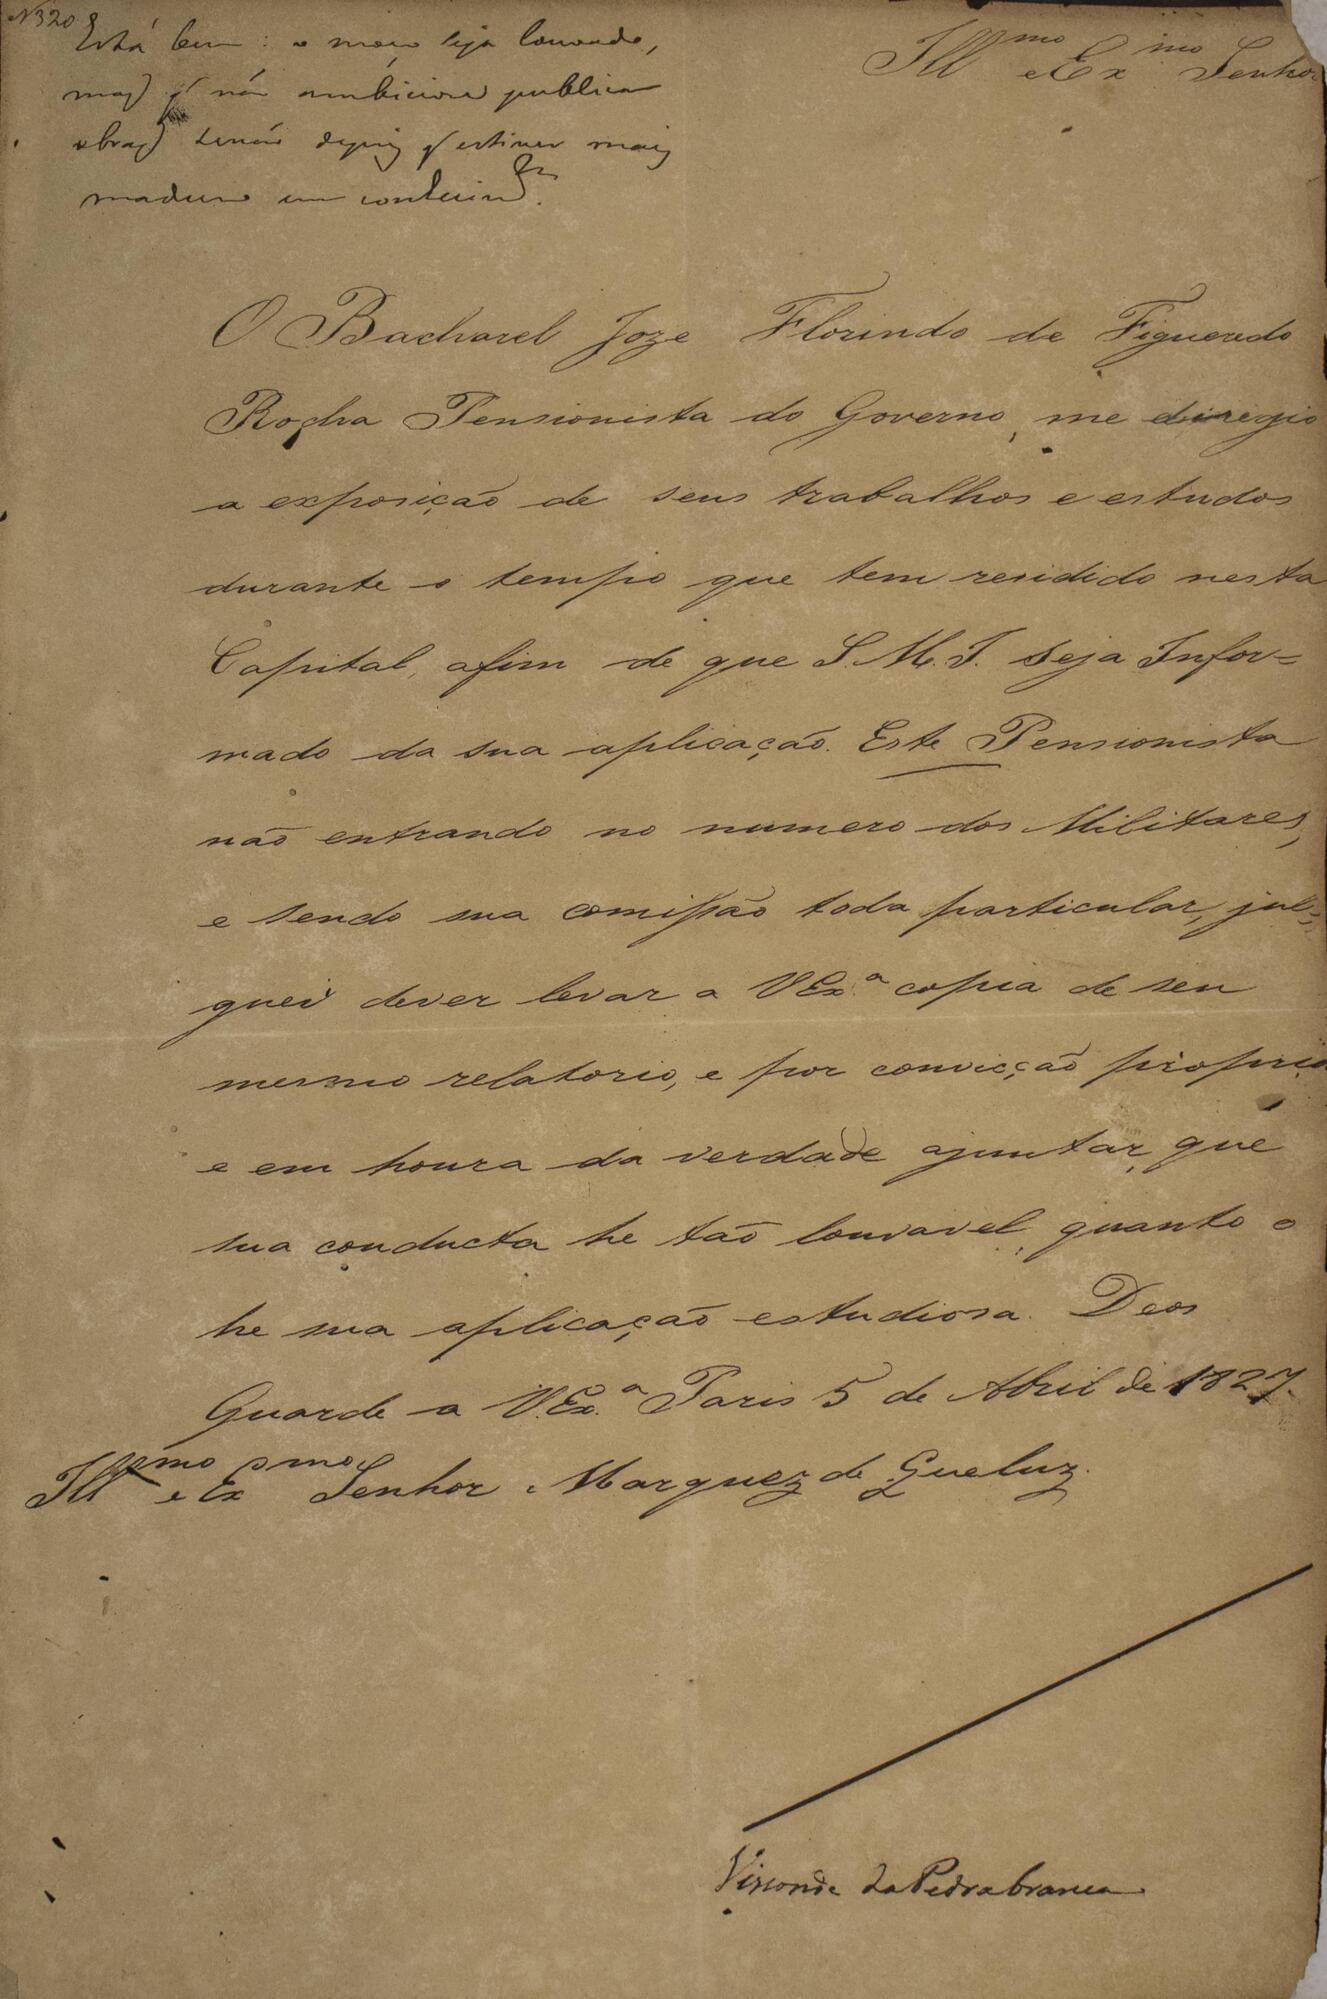 N320
Está bem: o moço seja louvado,
mas q̃ não ambicione publicar
obras senão depois q̃ estiver mais
maduro em conhecim.tos
Ill.mo e Ex.mo Senhor
O Bacharel Joze Florindo de Figueredo
Rocha Pensionista do Governo, me dirigio
a exposição de seus trabalhos e estudos
durante o tempo que tem residido nesta
Capital, afim de que S.M.I. seja Infor=
mado da sua aplicação. Este Pensionista
não entrando no numero dos Militares,
e sendo sua comissão toda particular, jul=
guei dever levar a VEx.ª copia de seu
mesmo relatorio, e por convicção propria
e em honra da verdade ajuntar, que
sua conducta he tão louvavel, quanto o
he sua aplicação estudiosa. Deos
Guarde a V.Ex.ª Paris 5 de Abril de 1827.
Ill.mo e Ex.mo Senhor Marquez de Queluz.
Visconde da Pedra branca